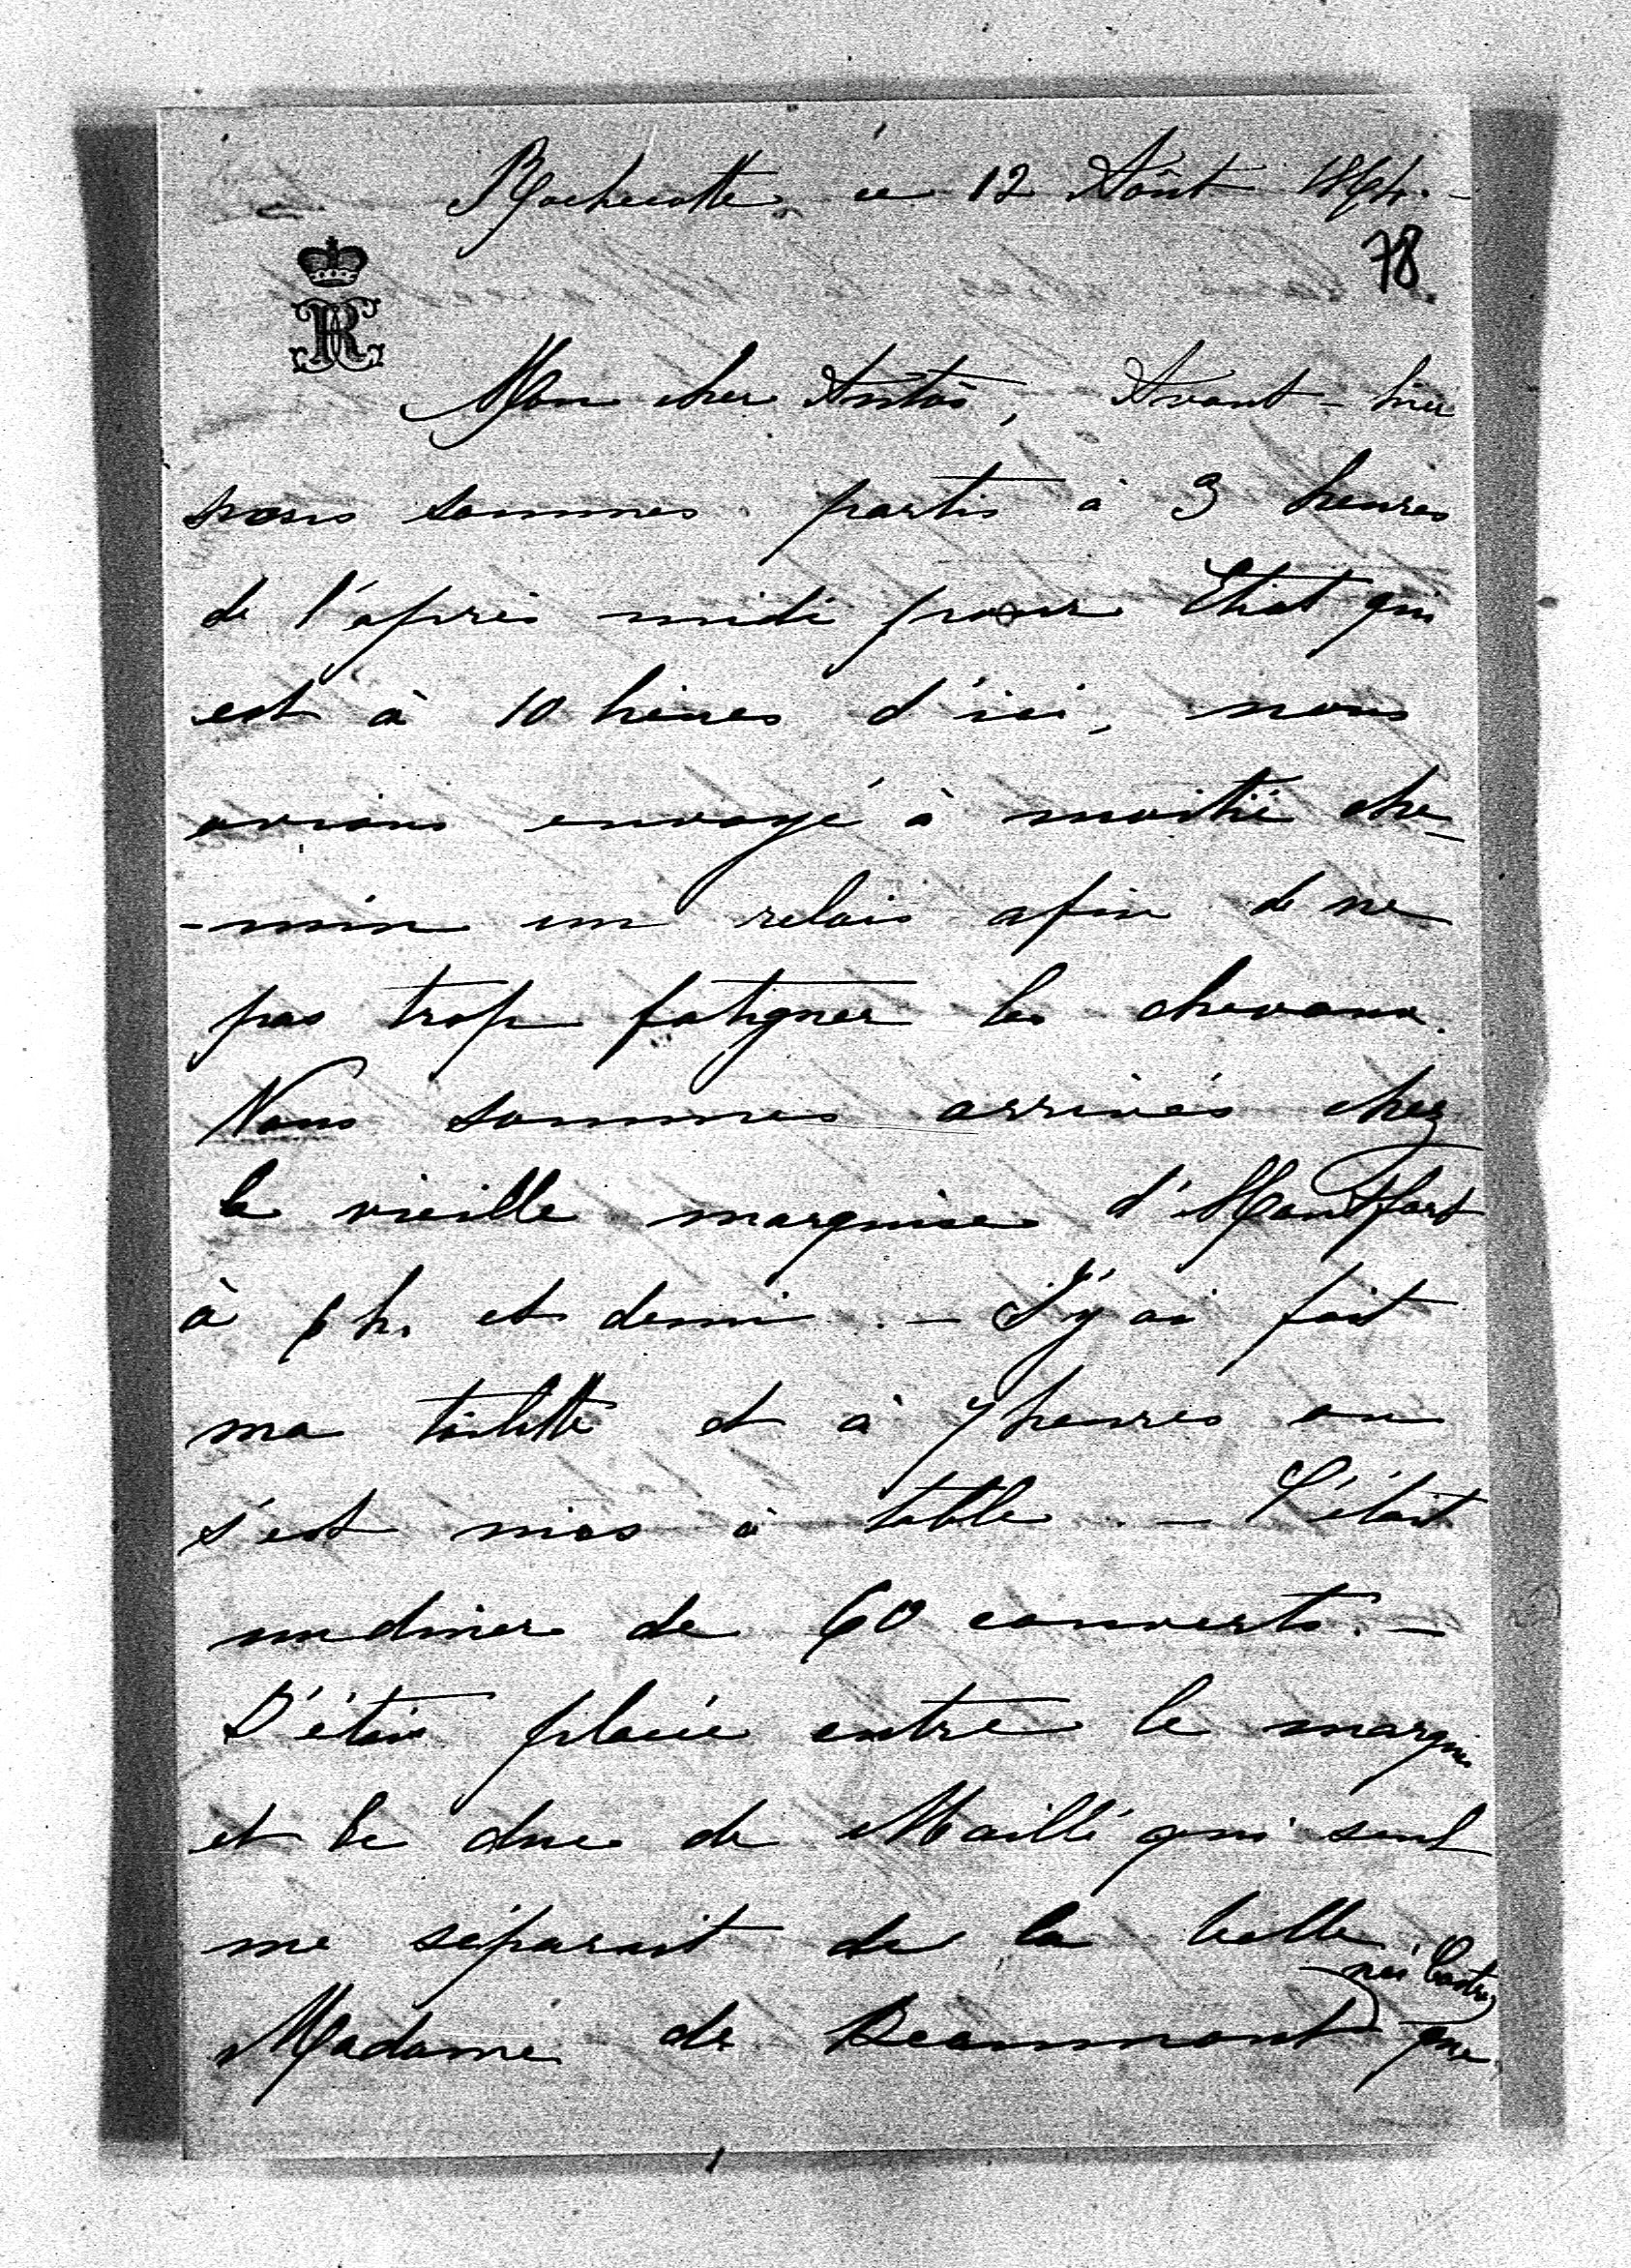 Rochecotte ce 12 Août 1864.-
78.
Mon cher Antoś, Avant-hier
nous sommes partis à 3 heures
de l'après midi pour qui
est à 10 lieues d'ici, nous
avions envoyé à moitié che-
-min un relais afin de ne
pas trop fatiguer les chevaux.
Nous sommes arrivés chez
la vieille marquise d'
à 6 h. et demi. - J'y ai fait
ma toilette et à 7 heures on
s'est mis à table. - C'était
un diner de 60 couverts. -
J'étais placée entre le marquis
et le duc de Maillé qui seul
me séparait de la belle
née Castries
Madame de Beaumont que